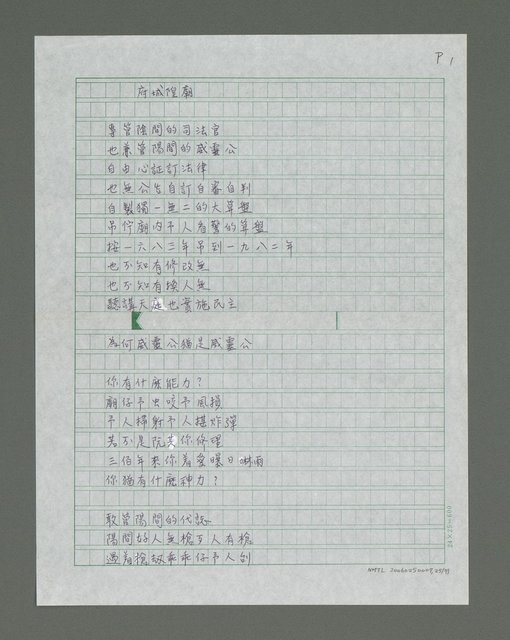 P 1
府城隍廟
專管陰間的司法官
也兼管陽間的威靈公
自由心証訂法律
也無公告自訂自審自判
自製獨一無二的大算盤
吊佇廟內予人看驚的算盤
按一六八三年吊到一九八二年
也不知有修改無
也不知有換人無
聽講天庭也實施民主
為何威靈公猶是威靈公
你有什麼能力？
廟仔予虫咬予風損
予人掃射予人摼炸彈
若不是阮共你修理
三佰年來你着愛曝日淋雨
你猶有什麼神力？
敢管陽間的代誌
陽間好人無槍歹人有槍
遇着搶劫乖乖仔予人创
24×25=600